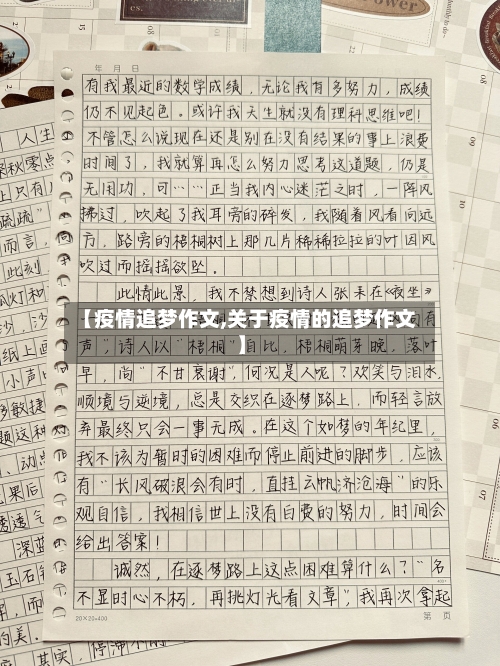 年 月 日
有我最近的数学成绩，无论我有多努力，成绩
仍不见起色。或许我天生就没有理科思维吧！
不管怎么说现在还是别在没有结果的事上浪费
时间了，我就算再怎么努力思考这道题，仍是
无用功，可……正当我内心迷茫之时，一阵风
拂过，吹起了我耳旁的碎发，我随着风看向远
方，路旁的梧桐树上那几片稀稀拉拉的叶因风
吹过而摇摇欲坠。
此情此景，我不禁想到诗人张耒在《夜坐》
【疫情追梦作文,关于疫情的追梦作文
】
声"，诗人以"梧桐"自比，梧桐萌芽晚，落叶
早，尚"不甘衰谢"，何况是人呢？欢笑与泪水，
顺境与逆境，总是交织在逐梦路上，而轻言放
弃最终只会一事无成。在这个如梦的年纪里，
我不该为暂时的困难而停止前进的脚步，应该
有"长风破浪会有时，直挂云帆济沧海"的乐
观自信，我相信世上没有白费的努力，时间会
给出答案！
诚然，在逐梦路上这点困难算什么？"名
不显时心不朽，再挑灯光看文章"，我再次拿起
20×20=400
第 页
人生
秋零点
上只有
疏疏"
而言，
此刻
瓜灯和
沙，沙
纸上画
小声
敏捷
题这种
、动点
果后
透透气
深蓝
玉石
，而
的美.
其实，停滞不
Power